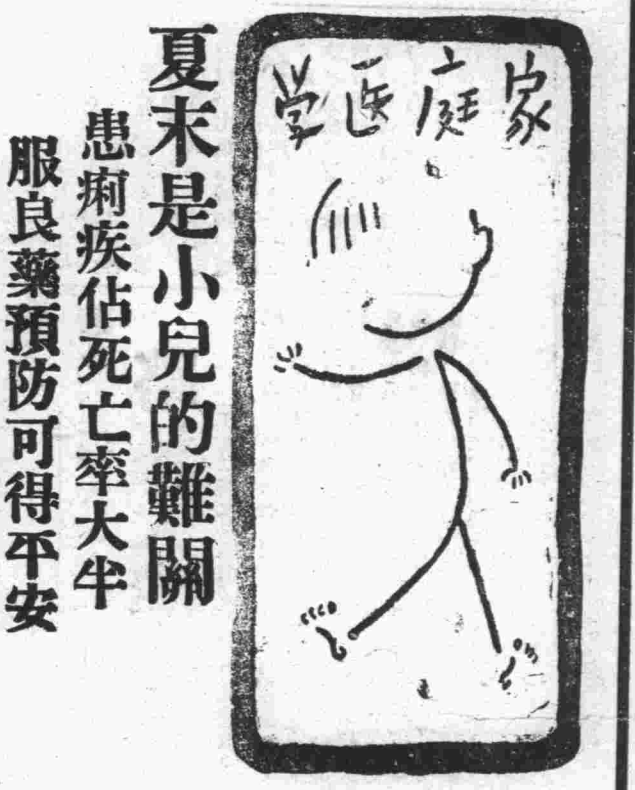 家庭医学
夏末是小兒的難關
患痢疾佔死亡率大半
服良藥預防可得平安